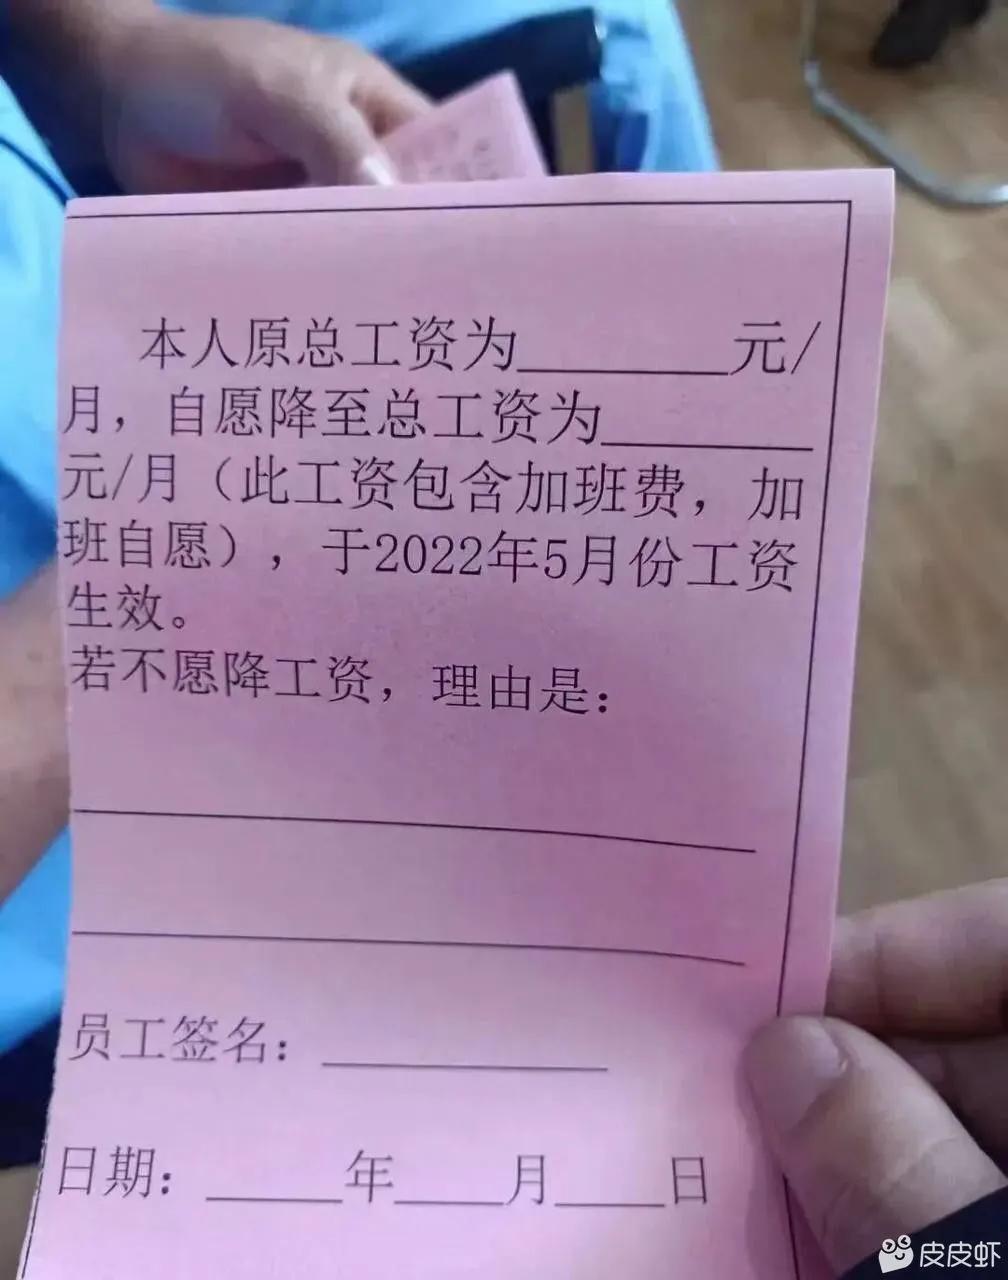 本人原总工资为________元/
月，自愿降至总工资为________
元/月（此工资包含加班费，加
班自愿），于2022年5月份工资
生效。
若不愿降工资，理由是：
员工签名：___________
日期：_____年____月____日
皮皮虾